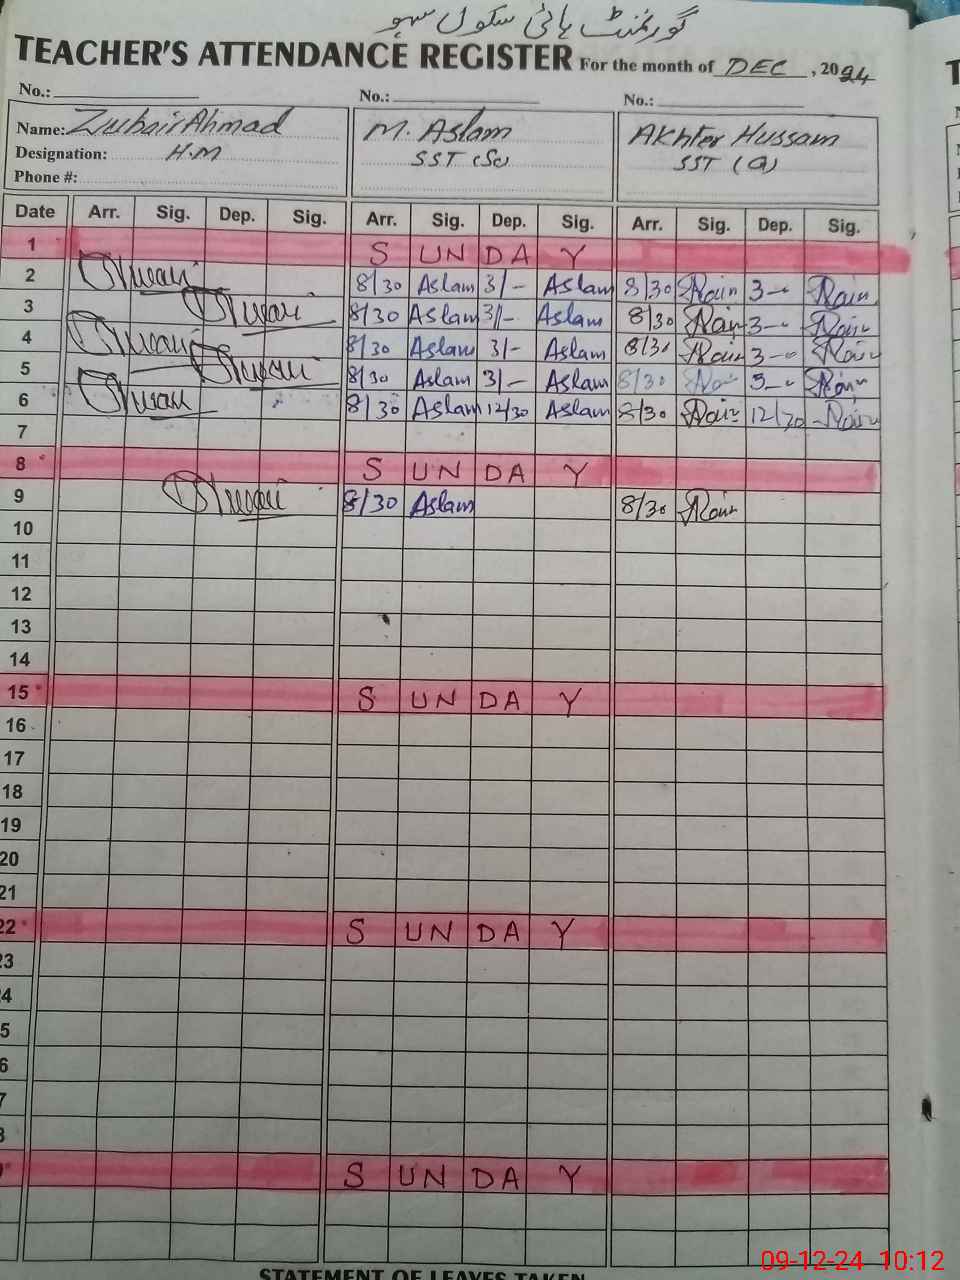 گورنمنٹ ہائی سکول
TEACHER'S ATTENDANCE REGISTER For the month of DEC, 2024
No.: No.: No.:
Name: Zubair Ahmad M. Aslam Akhter Hussam
Designation: H.M SST (Sc) SST (G)
Phone #:
Date Arr. Sig. Dep. Sig. Arr. Sig. Dep. Sig. Arr. Sig. Dep. Sig.
1 S UN DA Y
2 8/30 Aslam 3/- Aslam 8/30 3-
3 8/30 Aslam 3/- Aslam 8/30 3-
4 8/30 Aslam 3/- Aslam 8/30 3-
5 8/30 Aslam 3/- Aslam 8/30 3-
6 8/30 Aslam 12/30 Aslam 8/30 12/30
7
8 S UN DA Y
9 8/30 Aslam 8/30
10
11
12
13
14
15 S UN DA Y
16
17
18
19
20
21
22 S UN DA Y
23
24
5
6
7
8
S UN DA Y
STATEMENT OF LEAVES TAKEN
09-12-24 10:12